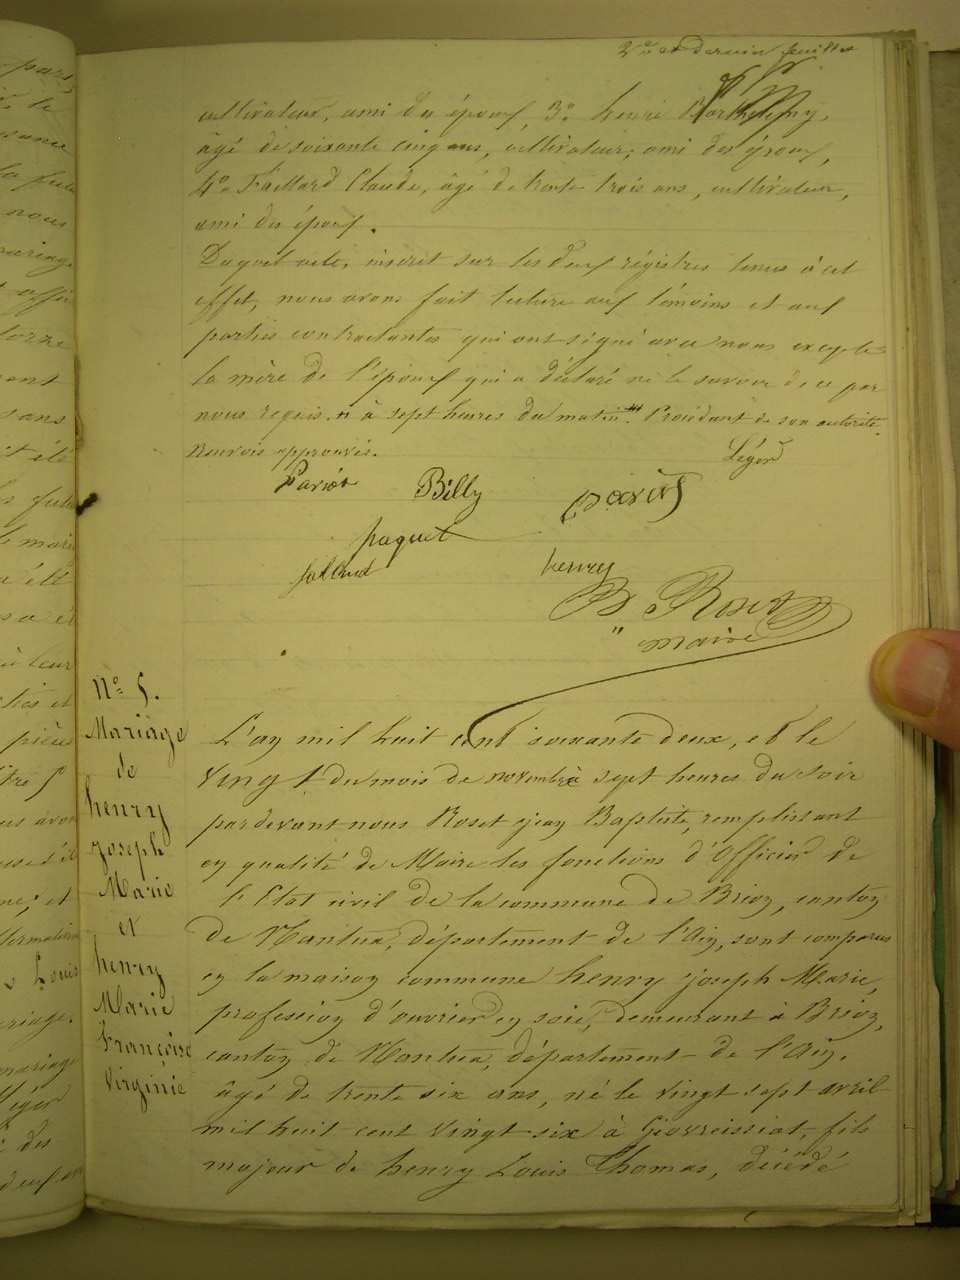 2me et dernier feuillet
cultivateur, ami du époux, 3o henri Barthelemy,
âgé de soixante cinq ans, cultivateur, ami des époux,
4o Faillard Claude, âgé de trente trois ans, cultivateur,
ami des époux.
Duquel acte, inscrit sur les deux régistres tenus à cet
effet, nous avons fait lecture aux témoins et aux
parties contractantes qui ont signé avec nous excepté
la mère de l'époux qui a déclaré ne le savoir de ce par
nous requis. à sept heures du matin. Procédant de son autorité.
Renvois approuvés. Léger
Pariót Billy
paquet
henry
B Roset
maire
No 5.
Mariage
de
henry
joseph
Marie
et
henry
Marie
Françoise
Virginie
L'an mil huit cent soixante deux, et le
vingt du mois de novembre à sept heures du soir
par devant nous Roset jean Baptiste, remplissant
en qualité de Maire les fonctions d'Officier de
l'Etat civil de la commune de Brion, canton
de Nantua, département de l'Ain, sont comparus
en la maison commune henry joseph Marie,
profession d'ouvrier en soie, demeurant à Brion,
canton de Nantua, département de l'Ain.
âgé de trente six ans, né le vingt sept avril
mil huit cent vingt six à Giovreissiat, fils
majeur de henry Louis Thomas, décédé